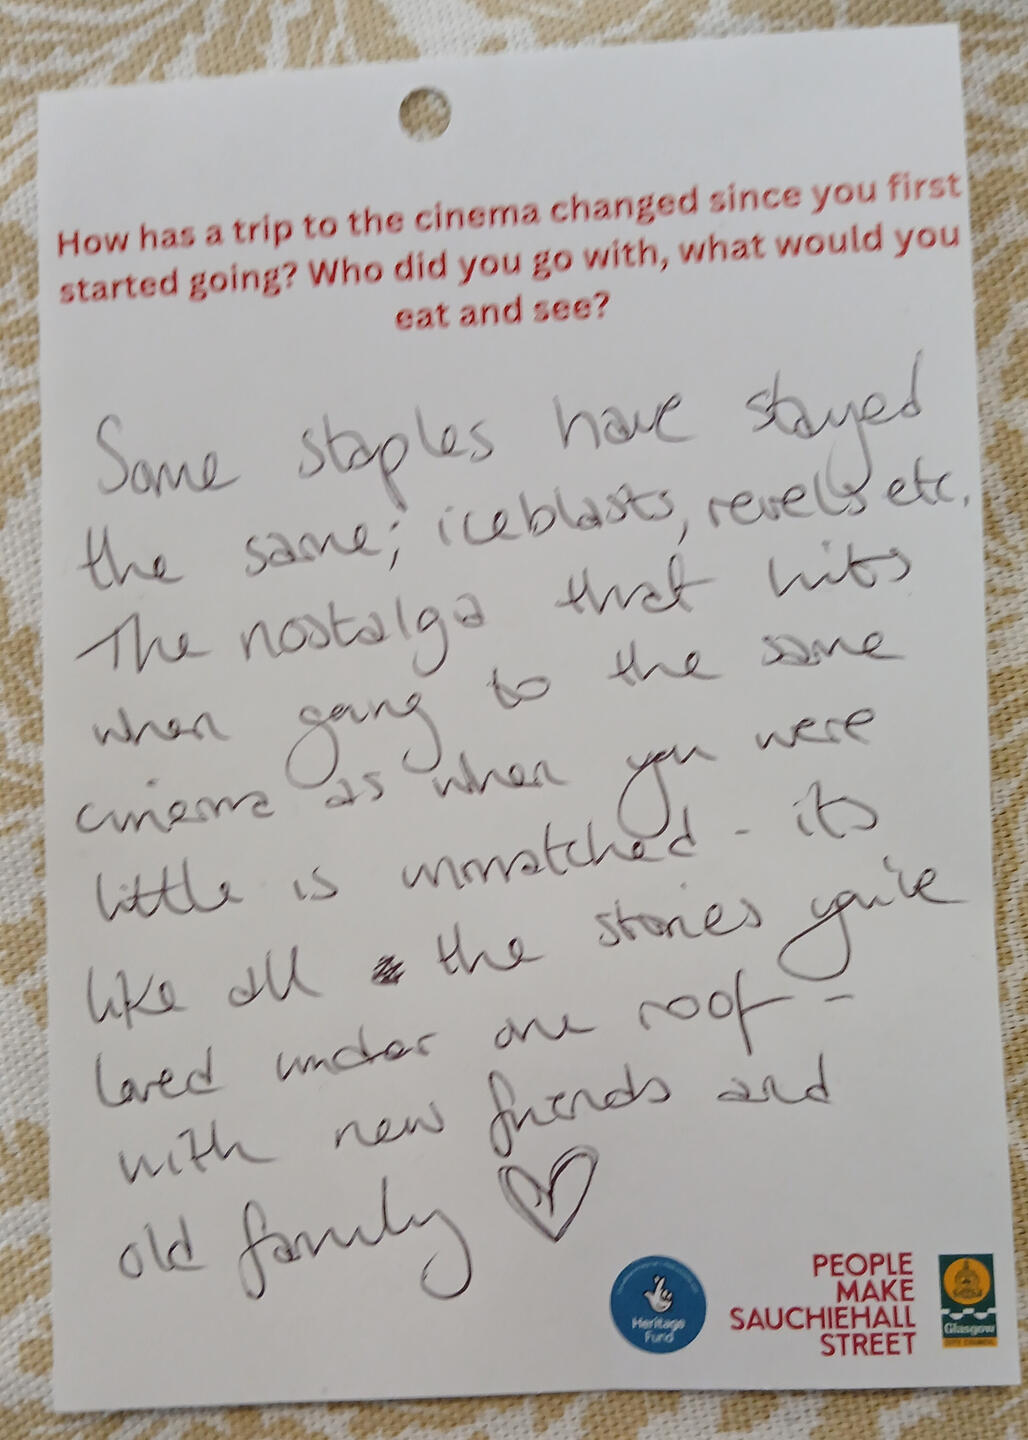 How has a trip to the cinema changed since you first
started going? Who did you go with, what would you
eat and see?
Some staples have stayed
the same; iceblasts, revels etc.
The nostalga that hits
when going to the same
cinema as when you were
little is unmatched - its
like all the stories you've
loved under one roof -
with new friends and
old family
Heritage
Fund
PEOPLE
MAKE
SAUCHIEHALL
STREET
Glasgow
CITY COUNCIL